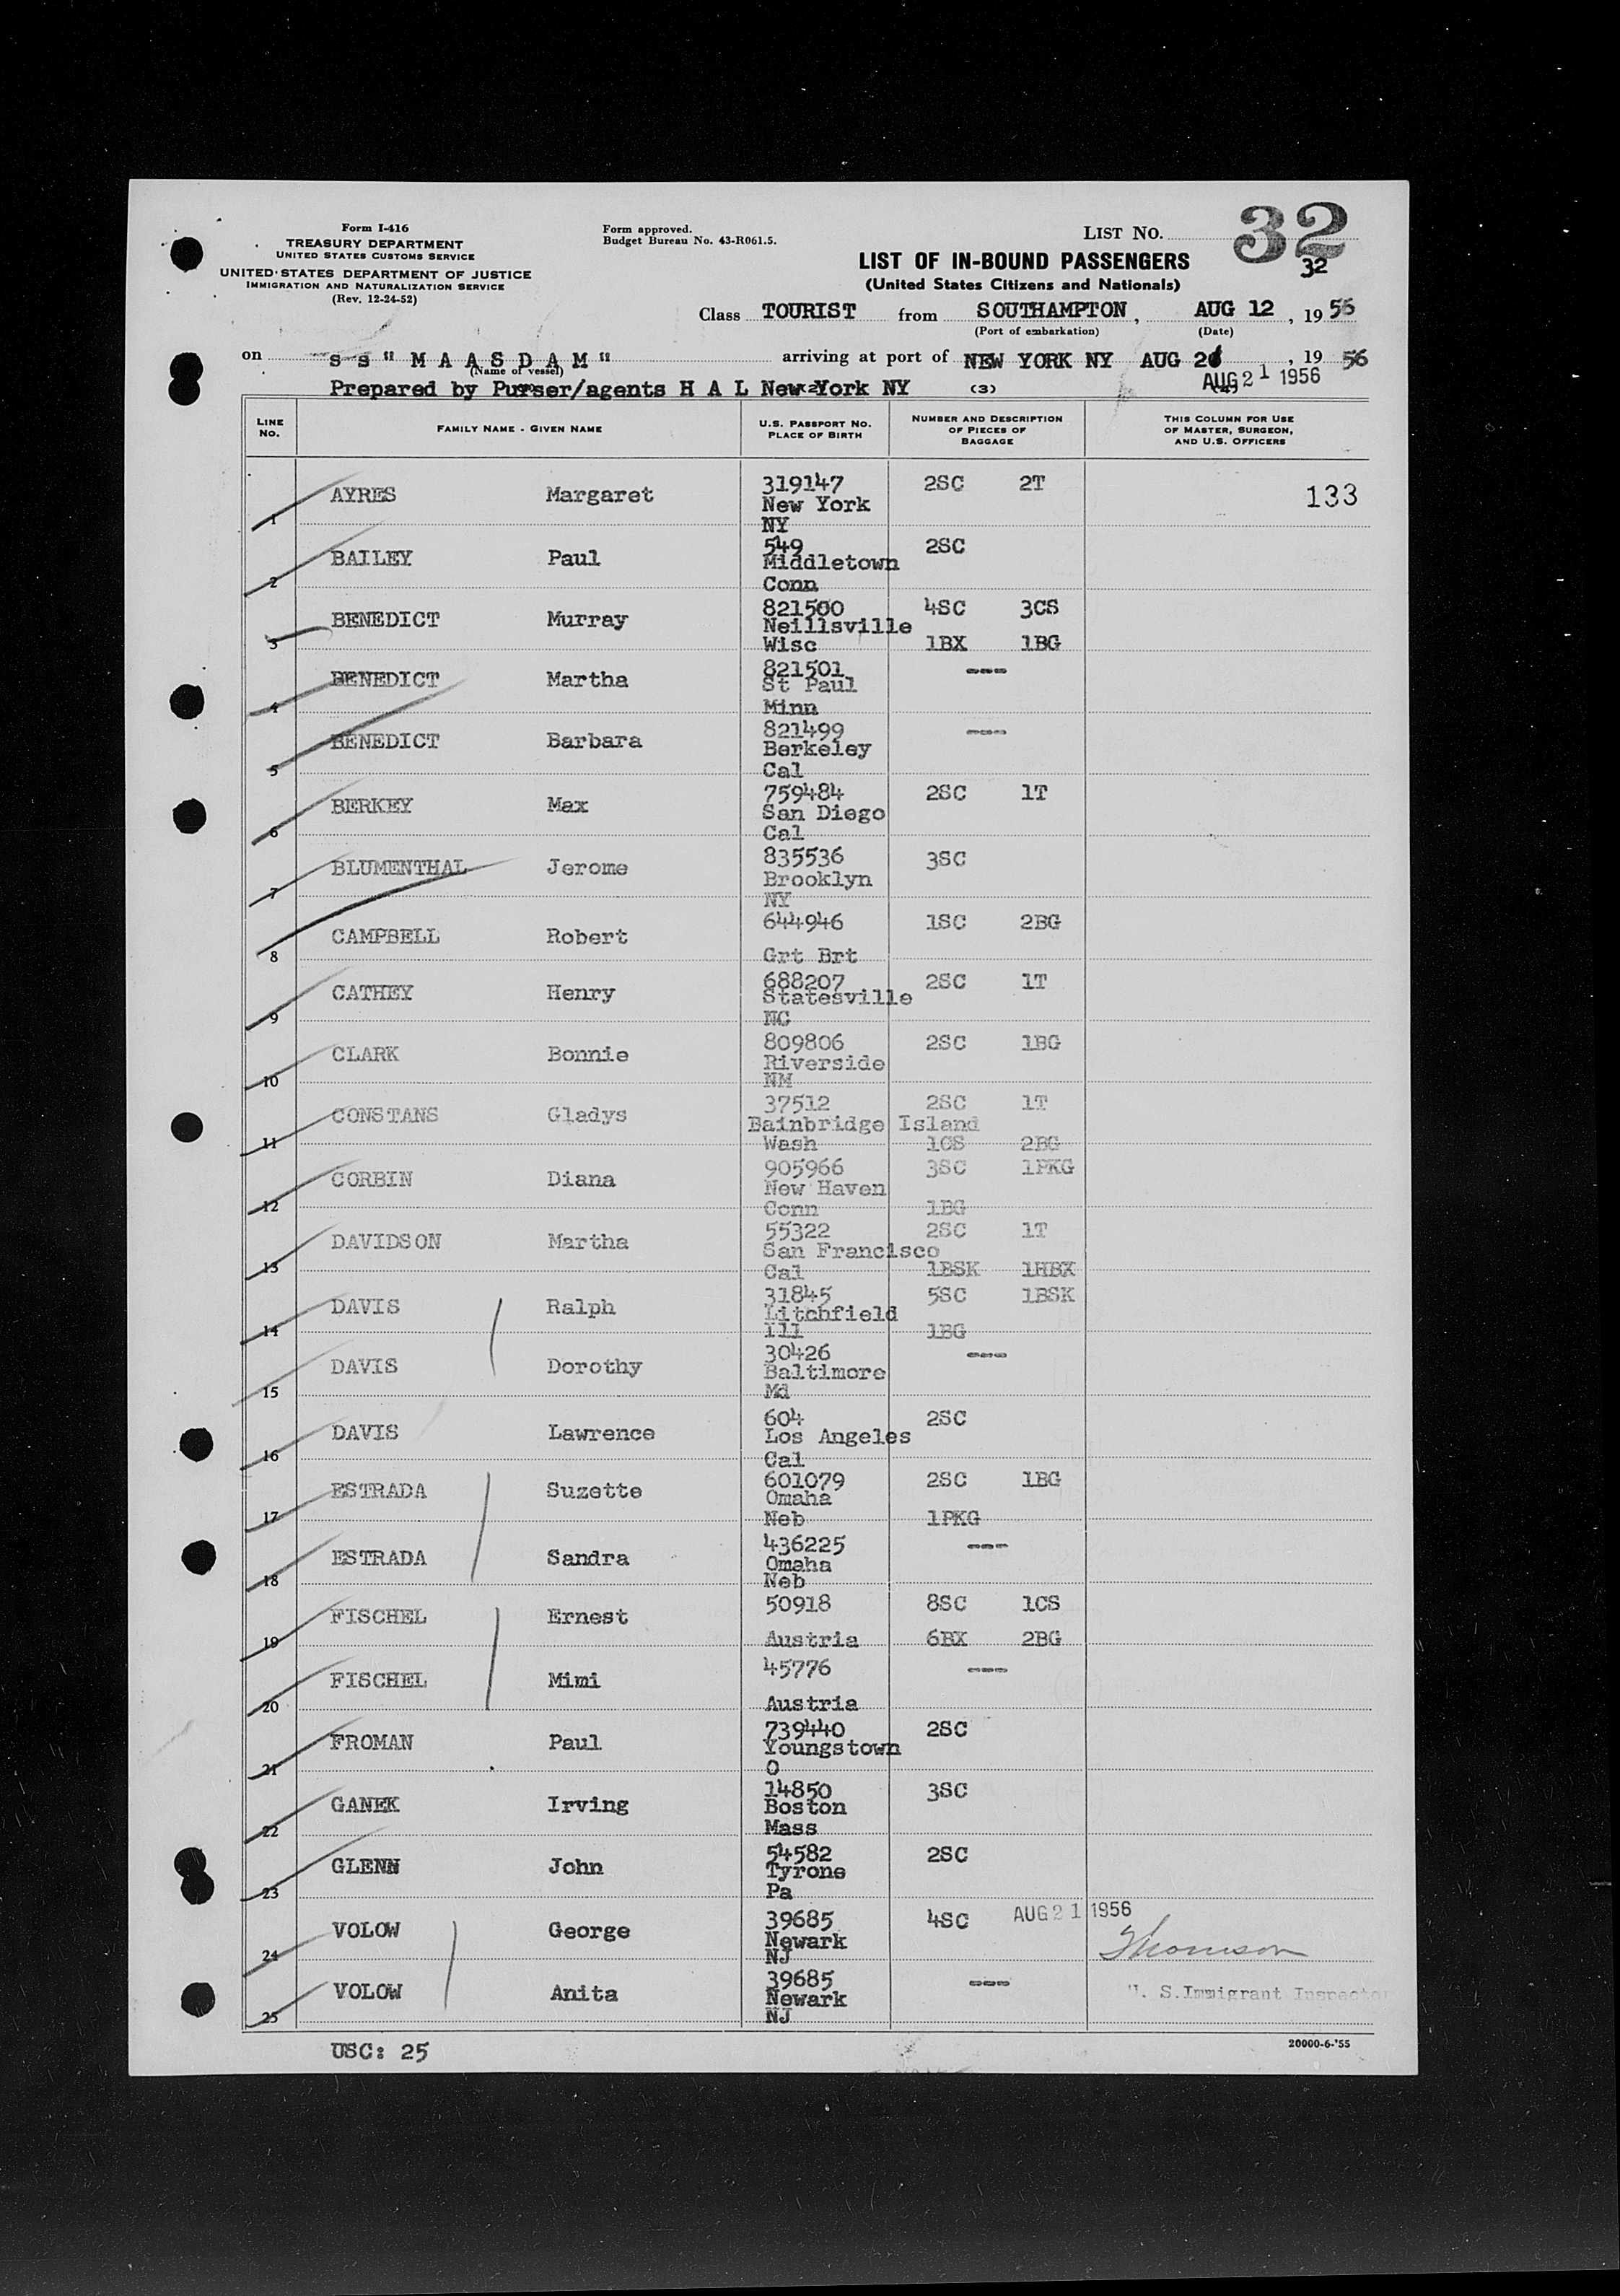 Form I-416
TREASURY DEPARTMENT
UNITED STATES CUSTOMS SERVICE
UNITED STATES DEPARTMENT OF JUSTICE
IMMIGRATION AND NATURALIZATION SERVICE
(Rev. 12-24-52)
Form approved.
Budget Bureau No. 43-R061.5.
LIST NO. 32
32
LIST OF IN-BOUND PASSENGERS
(United States Citizens and Nationals)
Class TOURIST from SOUTHAMPTON, AUG 12, 1956
(Port of embarkation) (Date)
on s s " M A A S D A M " arriving at port of NEW YORK NY AUG 21, 1956
(Name of vessel)
AUG 21 1956
Prepared by Purser/agents H A L New York NY (3)
LINE NO. FAMILY NAME - GIVEN NAME U.S. PASSPORT NO. PLACE OF BIRTH NUMBER AND DESCRIPTION OF PIECES OF BAGGAGE THIS COLUMN FOR USE OF MASTER, SURGEON, AND U.S. OFFICERS
1 AYRES Margaret 319147 2SC 2T 133
New York
NY
2 BAILEY Paul 549 2SC
Middletown
Conn
3 BENEDICT Murray 821500 4SC 3CS
Neillsville
Wisc 1BX 1BG
4 BENEDICT Martha 821501 ---
St Paul
Minn
5 BENEDICT Barbara 821499 ---
Berkeley
Cal
6 BERKEY Max 759484 2SC 1T
San Diego
Cal
7 BLUMENTHAL Jerome 835536 3SC
Brooklyn
NY
8 CAMPBELL Robert 644946 1SC 2BG
Grt Brt
9 CATHEY Henry 688207 2SC 1T
Statesville
NC
10 CLARK Bonnie 809806 2SC 1BG
Riverside
NM
11 CONSTANS Gladys 37512 2SC 1T
Bainbridge Island
Wash 1CS 2BG
12 CORBIN Diana 905966 3SC 1PKG
New Haven
Conn 1BG
13 DAVIDSON Martha 55322 2SC 1T
San Francisco
Cal 1BSK 1HBX
14 DAVIS Ralph 31845 5SC 1BSK
Litchfield
Ill 1BG
15 DAVIS Dorothy 30426 ---
Baltimore
Md
16 DAVIS Lawrence 604 2SC
Los Angeles
Cal
17 ESTRADA Suzette 601079 2SC 1BG
Omaha
Neb 1PKG
18 ESTRADA Sandra 436225 ---
Omaha
Neb
19 FISCHEL Ernest 50918 8SC 1CS
Austria 6BX 2BG
20 FISCHEL Mimi 45776 ---
Austria
21 FROMAN Paul 739440 2SC
Youngstown
O
22 GANEK Irving 14850 3SC
Boston
Mass
23 GLENN John 54582 2SC
Tyrone
Pa
24 VOLOW George 39685 4SC AUG 21 1956
Newark Thomson
NJ
25 VOLOW Anita 39685 ---
Newark U. S. Immigrant Inspector
NJ
USC: 25
20000-6-'55